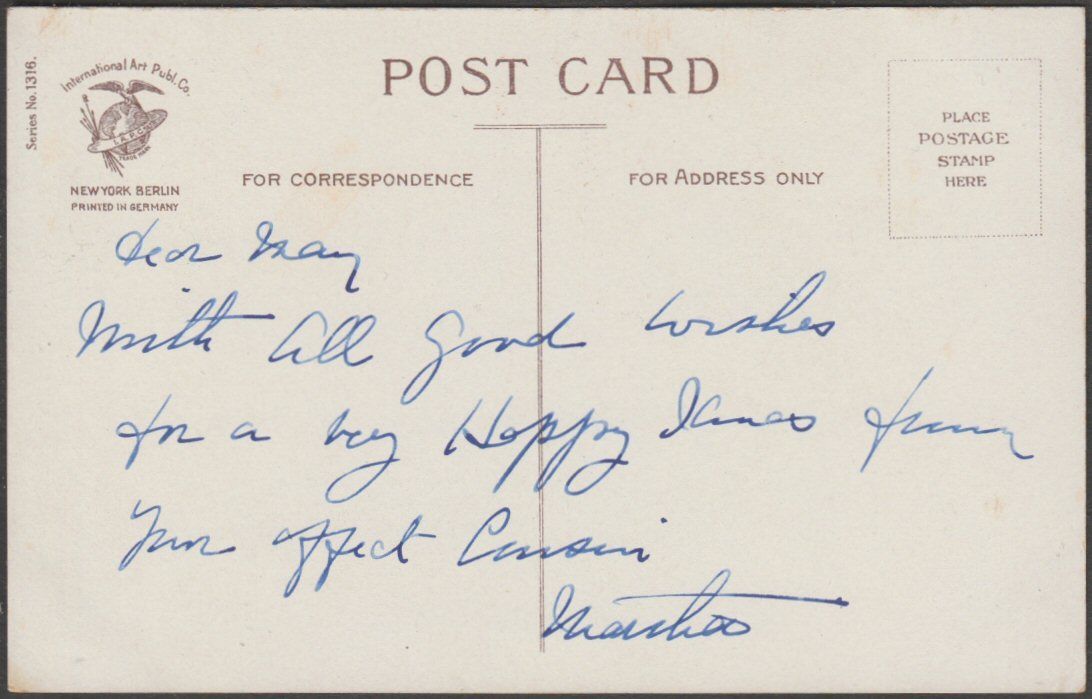 Series No. 1316.
International Art Publ. Co.
I. A. P. Co.
TRADE MARK
NEW YORK BERLIN
PRINTED IN GERMANY
POST CARD
FOR CORRESPONDENCE
FOR ADDRESS ONLY
PLACE
POSTAGE
STAMP
HERE
Dear May
With all Good wishes
for a very Happy Xmas from
Your affect Cousin